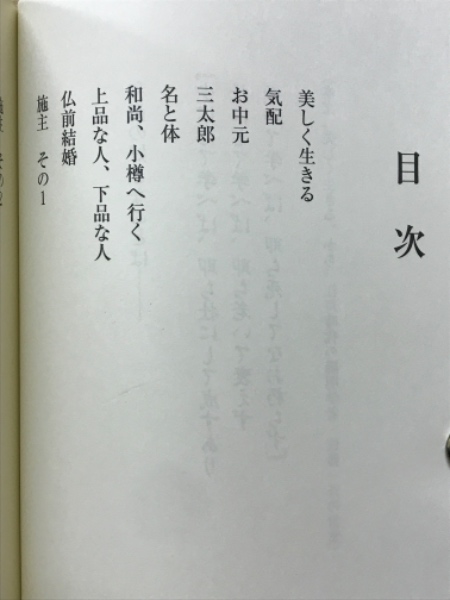 目次
美しく生きる
気配
お中元
三太郎
名と体
和尚、小樽へ行く
上品な人、下品な人
仏前結婚
施主 その1